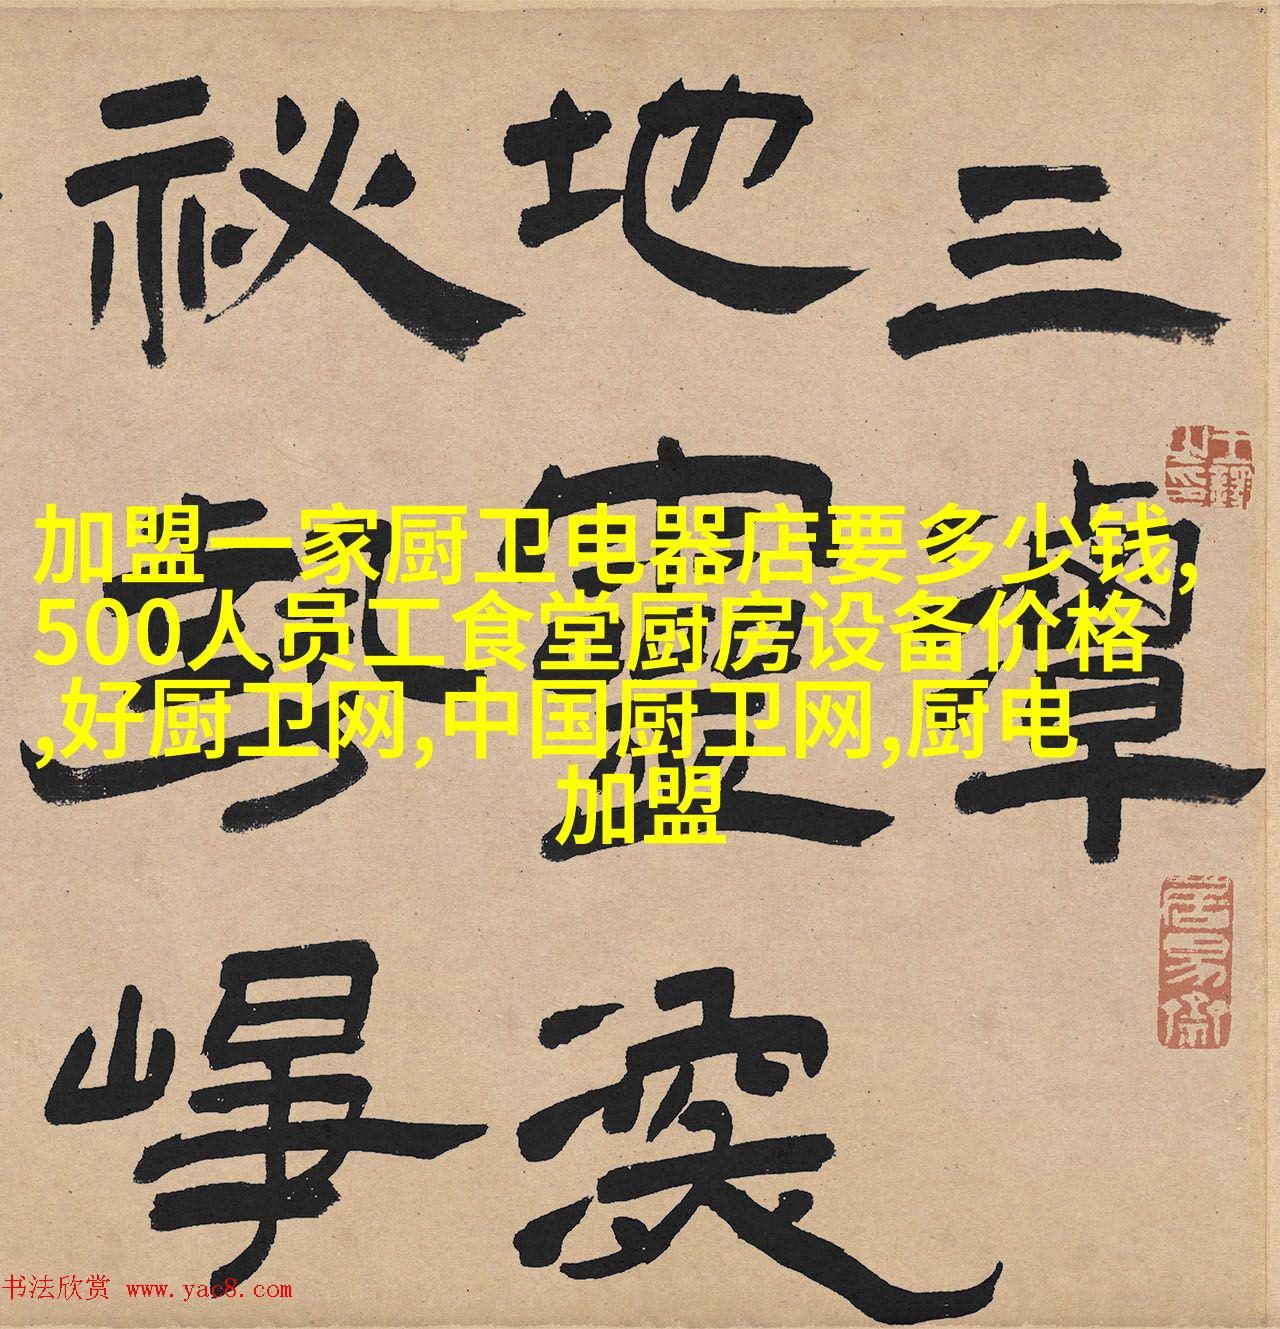 三潭
地靈爰
祕
加盟一家厨卫电器店要多少钱,
500人员工食堂厨房设备价格
,好厨卫网,中国厨卫网,厨电
加盟
居易
书法欣赏 www.yac8.com